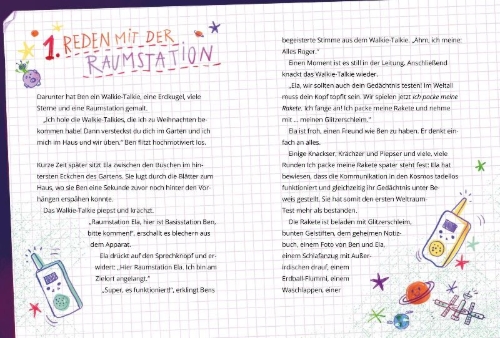 1. REDEN MIT DER
RAUMSTATION
Darunter hat Ben ein Walkie-Talkie, eine Erdkugel, viele
Sterne und eine Raumstation gemalt.
„Ich hole die Walkie-Talkies, die ich zu Weihnachten be-
kommen habe! Dann versteckst du dich im Garten und ich
mich im Haus und wir üben.“ Ben flitzt hochmotiviert los.
Kurze Zeit später sitzt Ela zwischen den Büschen im hin-
tersten Eckchen des Gartens. Sie lugt durch die Blätter zum
Haus, wo sie Ben eine Sekunde zuvor noch hinter den Vor-
hängen erspähen konnte.
Das Walkie-Talkie piepst und krächzt.
„Raumstation Ela, hier ist Basisstation Ben,
bitte kommen!“, erschallt es blechern aus
dem Apparat.
Ela drückt auf den Sprechknopf und er-
widert: „Hier Raumstation Ela. Ich bin am
Zielort angelangt.“
„Super, es funktioniert!“, erklingt Bens
begeisterte Stimme aus dem Walkie-Talkie. „Ähm, ich meine:
Alles Roger.“
Einen Moment ist es still in der Leitung. Anschließend
knackt das Walkie-Talkie wieder.
„Ela, wir sollten auch dein Gedächtnis testen! Im Weltall
muss dein Kopf topfit sein. Wir spielen jetzt ich packe meine
Rakete. Ich fange an! Ich packe meine Rakete und nehme
mit ... meinen Glitzerschleim.“
Ela ist froh, einen Freund wie Ben zu haben. Er denkt ein-
fach an alles.
Einige Knackser, Krächzer und Piepser und viele, viele
Runden Ich packe meine Rakete später steht fest: Ela hat
bewiesen, dass die Kommunikation in den Kosmos tadellos
funktioniert und gleichzeitig ihr Gedächtnis unter Be-
weis gestellt. Sie hat somit den ersten Weltraum-
Test mehr als bestanden.
Die Rakete ist beladen mit Glitzerschleim,
bunten Gelstiften, dem geheimen Notiz-
buch, einem Foto von Ben und Ela,
einem Schlafanzug mit Außer-
irdischen drauf, einem
Erdball-Flummi, einem
Waschlappen, einer